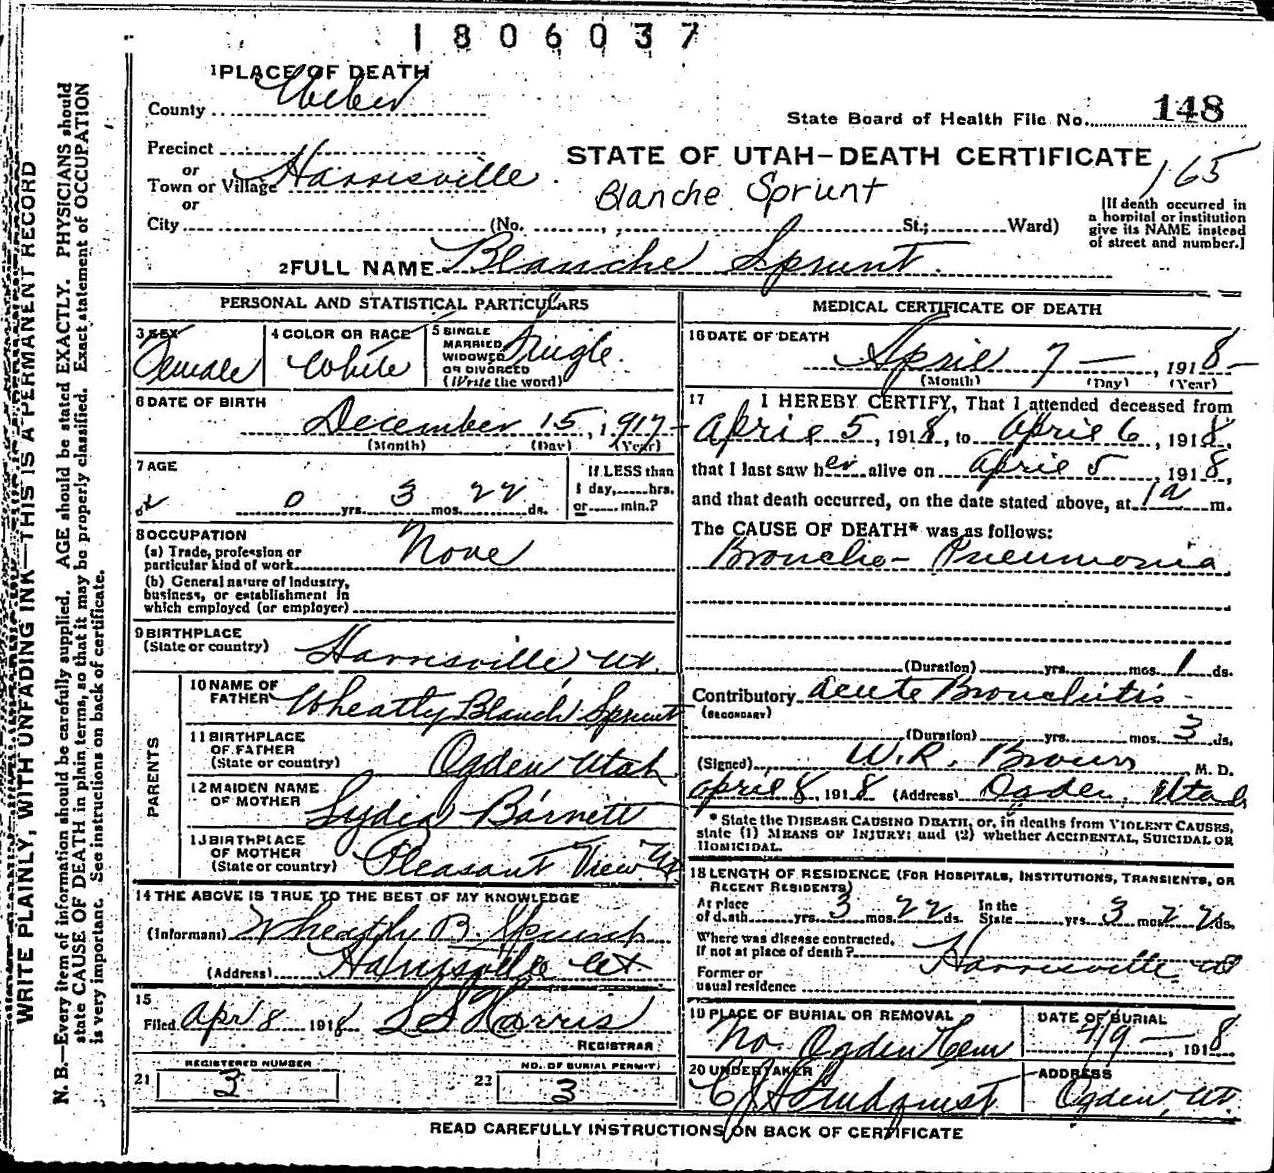 1806037
1 PLACE OF DEATH
County Weber
State Board of Health File No. 148
Precinct
or
Town or Village Harrisville
or
City (No. St.; Ward)
STATE OF UTAH—DEATH CERTIFICATE
165
Blanche Sprunt
[If death occurred in
a hospital or institution
give its NAME instead
of street and number.]
2 FULL NAME Blanche Sprunt
PERSONAL AND STATISTICAL PARTICULARS
3 SEX Female
4 COLOR OR RACE White
5 SINGLE
MARRIED
WIDOWED
OR DIVORCED
(Write the word) Single
6 DATE OF BIRTH
December 15, 1917
(Month) (Day) (Year)
7 AGE
0 yrs. 3 mos. 22 ds.
If LESS than
1 day, hrs.
or min.?
8 OCCUPATION
(a) Trade, profession or
particular kind of work None
(b) General nature of Industry,
business, or establishment in
which employed (or employer)
9 BIRTHPLACE
(State or country) Harrisville Ut.
PARENTS
10 NAME OF
FATHER Wheatly Blanch Sprunt
11 BIRTHPLACE
OF FATHER
(State or country) Ogden Utah
12 MAIDEN NAME
OF MOTHER Lydia Barnett
13 BIRTHPLACE
OF MOTHER
(State or country) Pleasant View Ut
14 THE ABOVE IS TRUE TO THE BEST OF MY KNOWLEDGE
(Informant) Wheatly B. Sprunt
(Address) Harrisville Ut.
15
Filed Apr 8 1918 L S Harris
REGISTRAR
REGISTERED NUMBER
21 3
NO. OF BURIAL PERMIT
22 3
MEDICAL CERTIFICATE OF DEATH
16 DATE OF DEATH
April 7 — , 1918 —
(Month) (Day) (Year)
17 I HEREBY CERTIFY, That I attended deceased from
April 5, 1918, to April 6, 1918,
that I last saw her alive on April 5, 1918,
and that death occurred, on the date stated above, at 1 a m.
The CAUSE OF DEATH* was as follows:
Broncho-Pneumonia
(Duration) yrs. mos. 1 ds.
Contributory Acute Bronchitis
(SECONDARY)
(Duration) yrs. mos. 3 ds.
(Signed) W.R. Brown M. D.
April 8, 1918 (Address) Ogden, Utah
* State the DISEASE CAUSING DEATH, or, in deaths from VIOLENT CAUSES,
state (1) MEANS OF INJURY; and (2) whether ACCIDENTAL, SUICIDAL OR
HOMICIDAL.
18 LENGTH OF RESIDENCE (FOR HOSPITALS, INSTITUTIONS, TRANSIENTS, OR
RECENT RESIDENTS)
At place
of death yrs. 3 mos. 22 ds. In the
State yrs. 3 mos. 22 ds.
Where was disease contracted,
if not at place of death? Harrisville Ut
Former or
usual residence
19 PLACE OF BURIAL OR REMOVAL
No. Ogden Cem
DATE OF BURIAL
4/9 — , 1918
20 UNDERTAKER
ADDRESS
Ogden, Ut.
READ CAREFULLY INSTRUCTIONS ON BACK OF CERTIFICATE
WRITE PLAINLY, WITH UNFADING INK—THIS IS A PERMANENT RECORD
N. B.—Every item of information should be carefully supplied. AGE should be stated EXACTLY. PHYSICIANS should
state CAUSE OF DEATH in plain terms, so that it may be properly classified. Exact statement of OCCUPATION
is very important. See instructions on back of certificate.